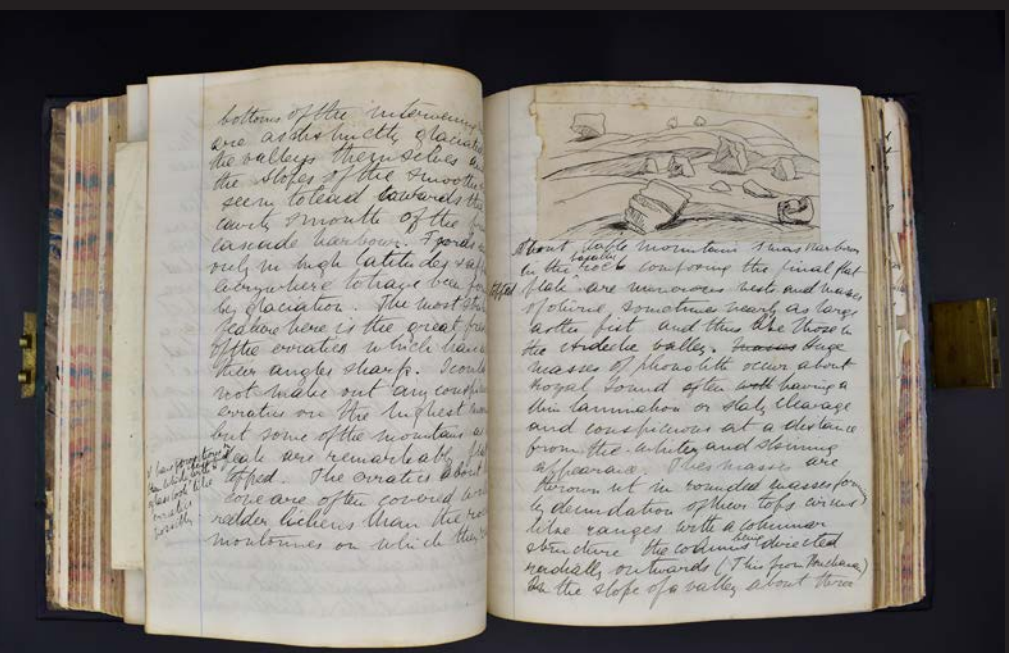 bottoms of the intervening
are as distinctly glaciated
the valleys themselves
the slopes of the smooth
seem to lead towards the
mouth of the
cascade harbour. Fjords
only in high latitudes
everywhere to have been
by glaciation. The most
feature here is the great
of the erratics which have
their angles sharp. I could
not make out any
erratics on the highest
but some of the mountains
are remarkably flat
topped. The erratics about
cove are often covered
redder lichens than the
montonnes on which they
erratics
About Table mountain & near Harbour
in the basaltic rock composing the final flat
plate are numerous nests and masses
of olivine sometimes nearly as large
as the fist and thus like those in
the Ardeche valley. Huge
masses of phonolite occur about
Royal Sound often with having a
thin lamination or slaty cleavage
and conspicuous at a distance
from the white and shining
appearance. These masses are
thrown up in rounded masses
by denudation of their tops cirrus
like ranges with a columnar
structure the columns being directed
radially outwards (This from Buchanan)
On the slope of a valley about three